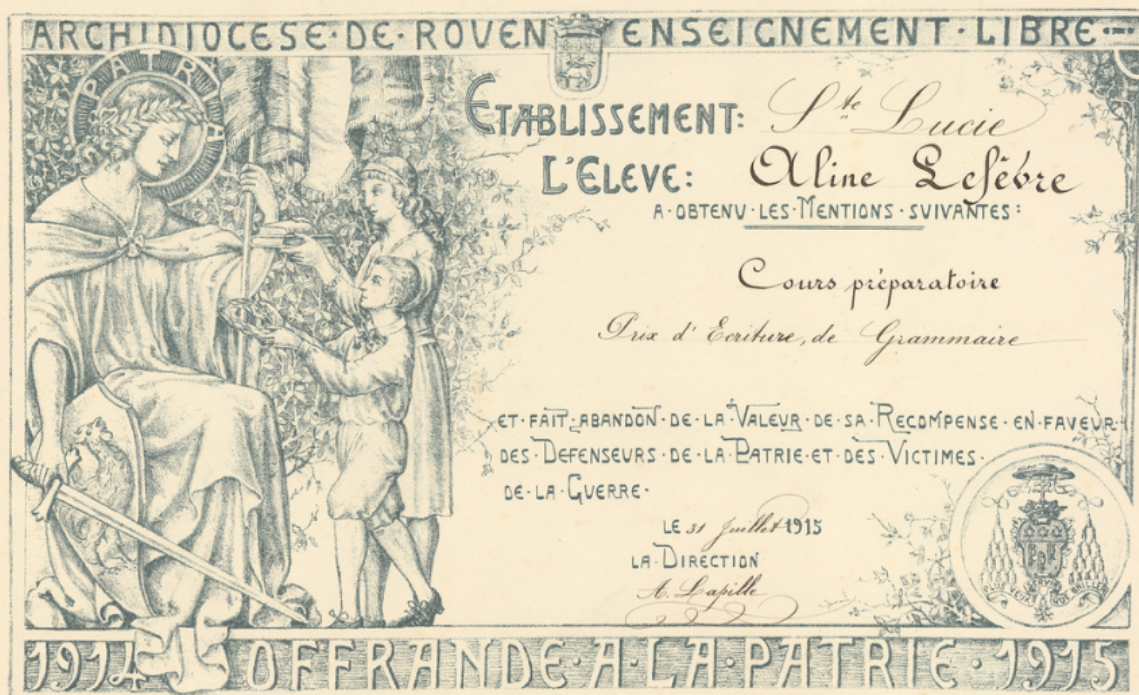 ARCHIDIOCESE·DE·ROVEN ENSEIGNEMENT·LIBRE
PATRIA
ETABLISSEMENT: Ste Lucie
L'ELEVE: Aline Lefèbvre
A·OBTENV·LES·MENTIONS·SVIVANTES:
Cours préparatoire
Prix d'Ecriture, de Grammaire
ET·FAIT·ABANDON·DE·LA·VALEUR·DE·SA·RECOMPENSE·EN·FAVEUR·
DES·DEFENSEURS·DE·LA·PATRIE·ET·DES·VICTIMES·
DE·LA·GVERRE·
LE 31 Juillet 1915
LA·DIRECTION
A. Lapille
1914 OFFRANDE·A·LA·PATRIE·1915